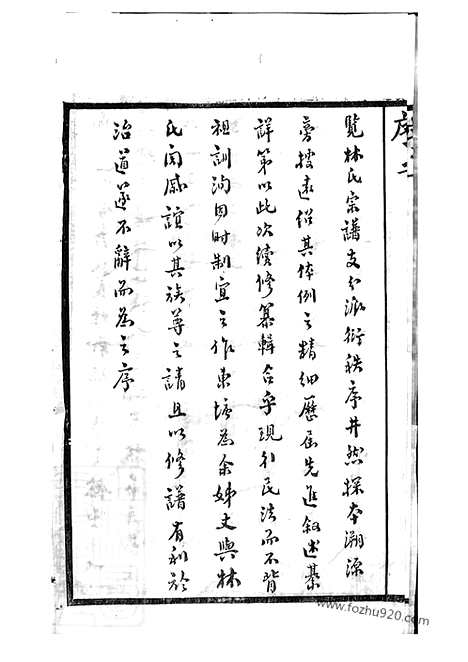 覽林氏宗譜支分派衍秩序井然探本溯源
旁搜遠紹其体例之精細歷屆先進叙述綦
詳第以此次續修纂輯合乎現行民法而不背
祖訓洵因時制宜之作東塘為余姊丈與林
氏南戚誼以其族尊之請且以修譜有利於
治道遂不辭而為之序
www.fozhu920.com